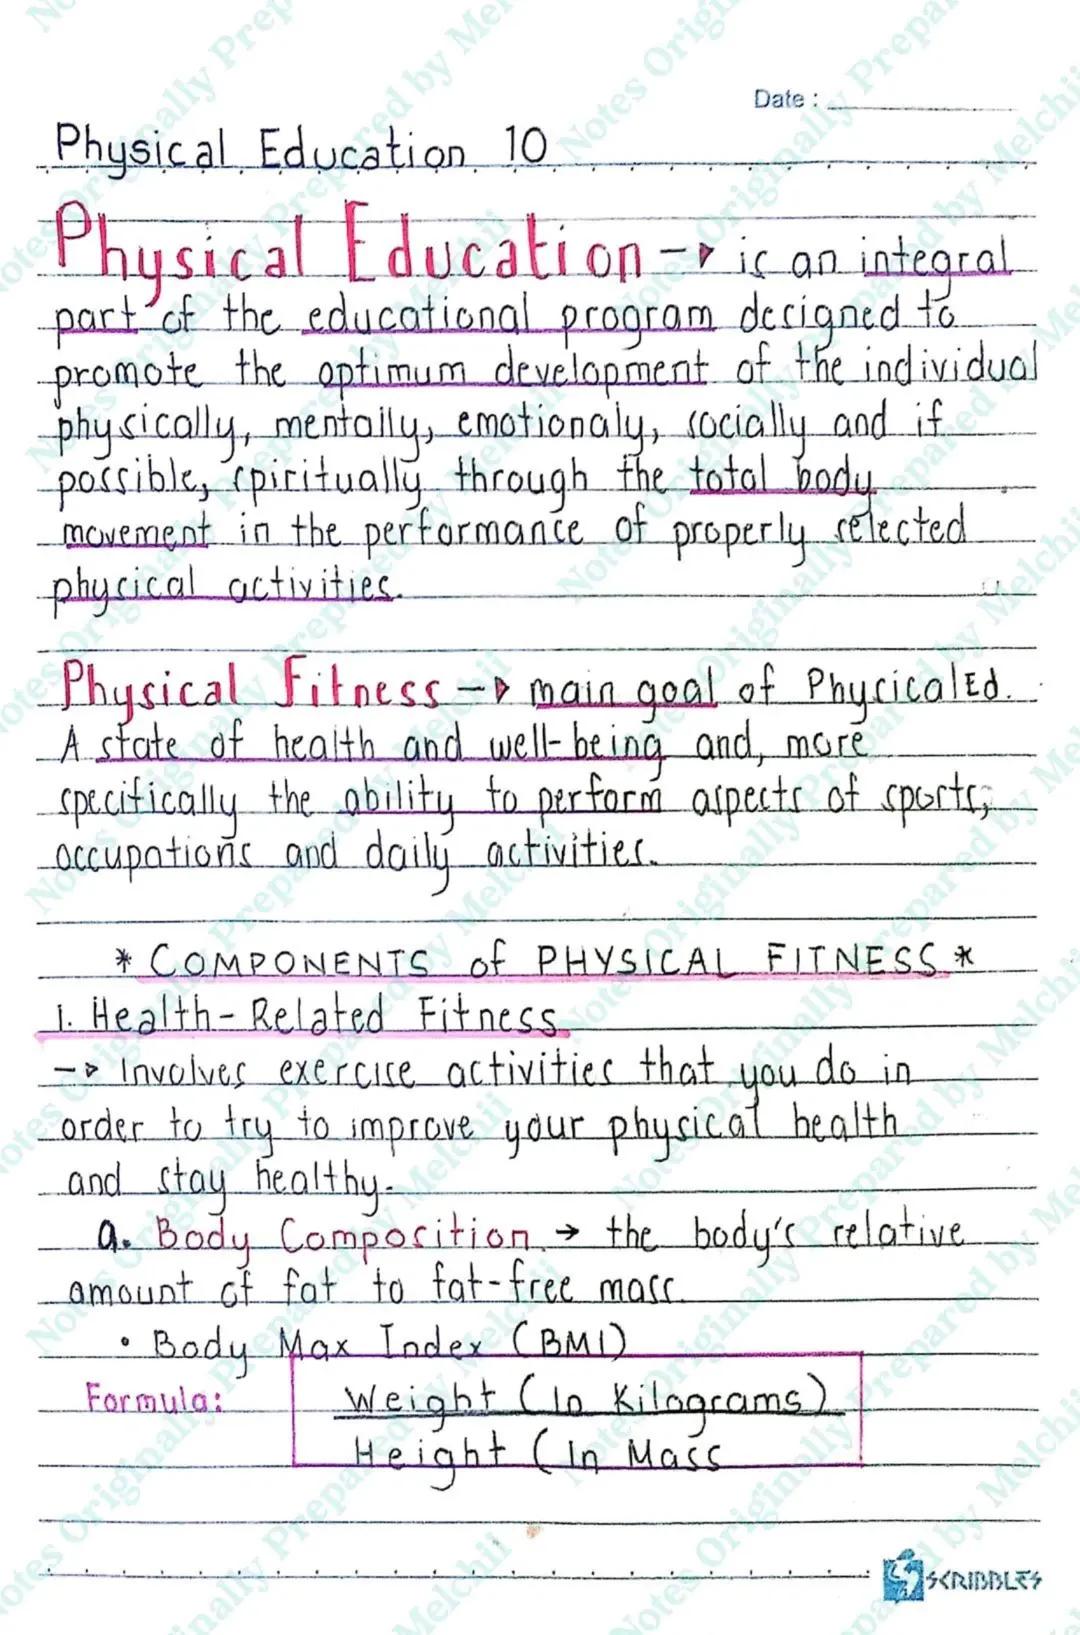 Date :
Physical Education 10
Physical Education -> is an integral
part of the educational program designed to
promote the optimum development of the individual
physically, mentally, emotionaly, socially and if
possible, spiritually through the total body
movement in the performance of properly selected
physical activities.
Physical Fitness -> main goal of Physical Ed.
A state of health and well-being and, more
specifically the ability to perform aspects of sports,
occupations and daily activities.
* COMPONENTS of PHYSICAL FITNESS *
1. Health-Related Fitness
-> Involves exercise activities that you do in
order to try to improve your physical health
and stay healthy.
a. Body Composition → the body's relative
amount of fat to fat-free mass.
• Body Max Index (BMI)
Formula: Weight (In Kilograms)
Height (In Mass
SCRIBBLES
Notes Originally Prepared by Melchii